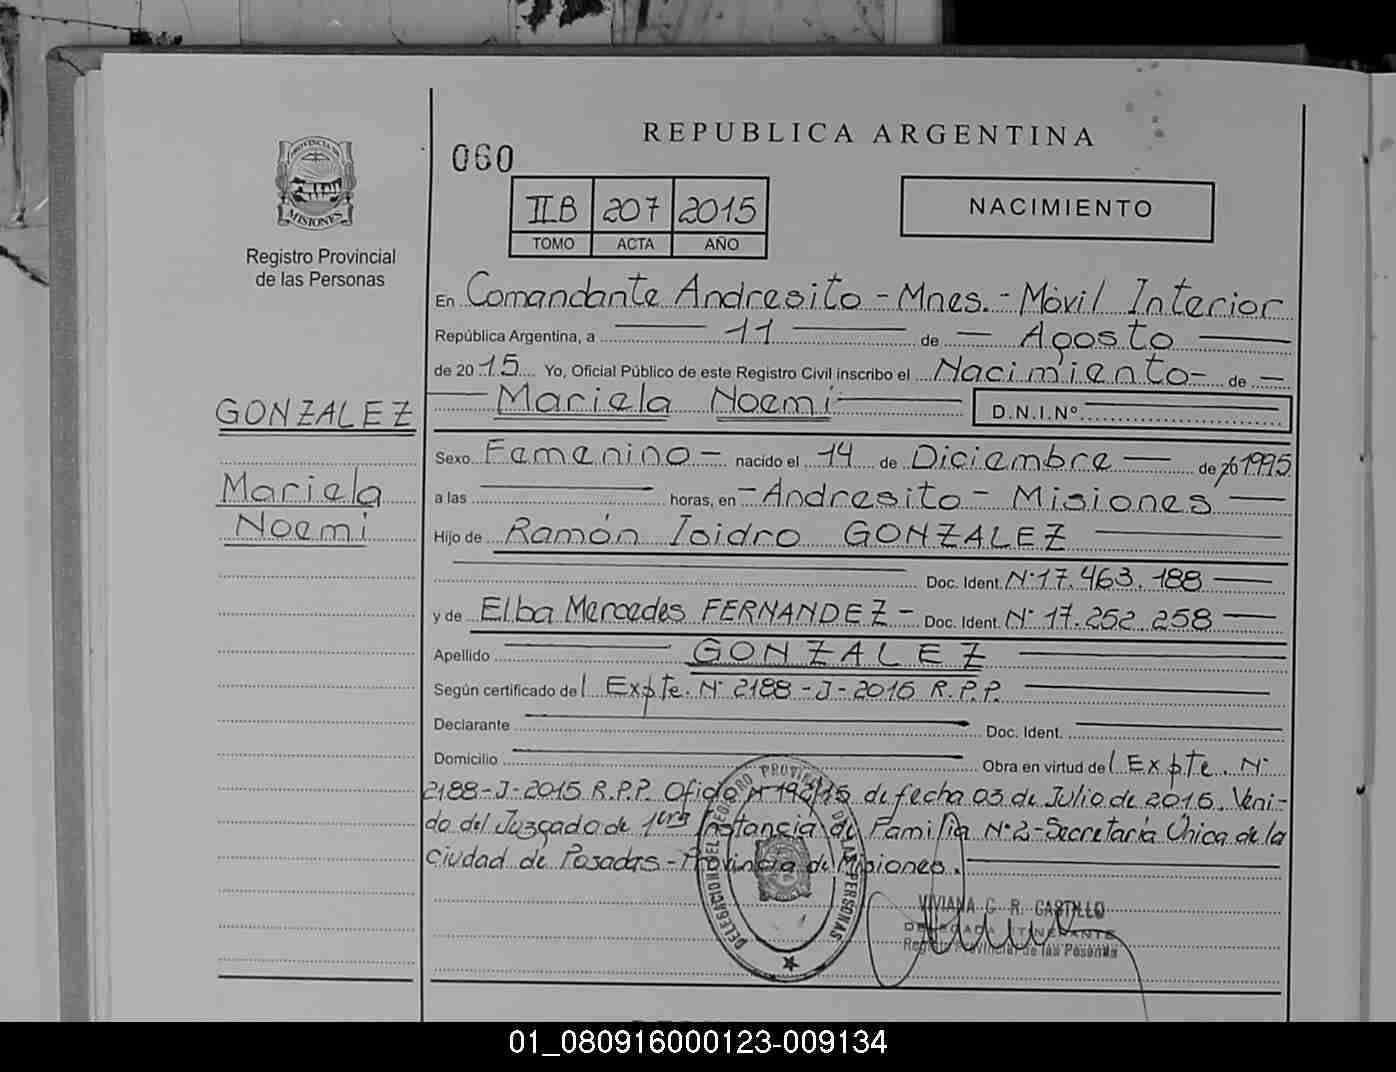 REPUBLICA ARGENTINA
060
PROVINCIA DE
MISIONES
Registro Provincial
de las Personas
IIB 207 2015
TOMO ACTA AÑO
NACIMIENTO
En Comandante Andresito - Mnes. - Móvil Interior
República Argentina, a 11 de Agosto
de 2015 Yo, Oficial Público de este Registro Civil inscribo el Nacimiento- de
Mariela Noemi D.N.I.Nº
GONZALEZ
Mariela
Noemi
Sexo Femenino - nacido el 14 de Diciembre de 1995
a las horas, en Andresito - Misiones
Hijo de Ramón Isidro GONZALEZ
Doc. Ident. Nº 17.463.188
y de Elba Mercedes FERNANDEZ - Doc. Ident. Nº 17.252.258
Apellido GONZALEZ
Según certificado del Expte. Nº 2188-J-2015 R.P.P.
Declarante Doc. Ident.
Domicilio Obra en virtud del Expte. Nº
2188-J-2015 R.P.P. Oficio Nº 192/15 de fecha 03 de Julio de 2015. Veni-
do del Juzgado de 1era Instancia de Familia Nº2-Secretaría Única de la
ciudad de Posadas - Provincia de Misiones.
DELEGACION DEL REGISTRO PROVINCIAL DE LAS PERSONAS
VIVIANA G. R. CASTILLO
DELEGADA ITINERANTE
Registro Provincial de las Personas
01_080916000123-009134